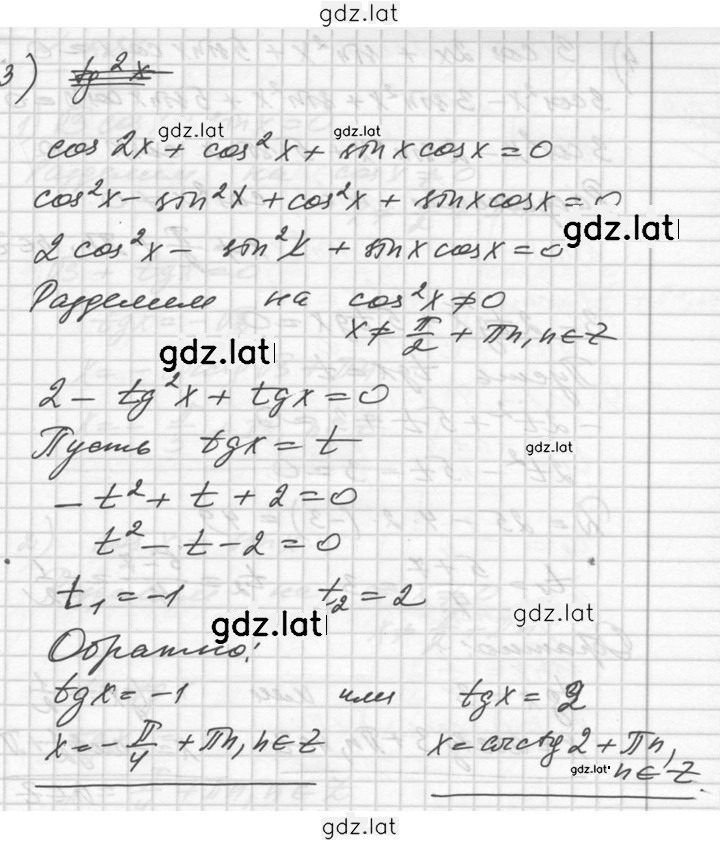 gdz.lat
3) tg²x
cos 2x + cos²x + sinx cosx = 0
gdz.lat gdz.lat
cos²x - sin²x + cos²x + sinx cosx = 0
2 cos²x - sin²x + sinx cosx = 0
gdz.lat
Разделим на cos²x ≠ 0
x ≠ π/2 + πn, n ∈ Z
gdz.lat
2 - tg²x + tgx = 0
Пусть tgx = t
gdz.lat
- t² + t + 2 = 0
t² - t - 2 = 0
t₁ = -1 t₂ = 2
gdz.lat gdz.lat
Обратно:
tgx = -1 или tgx = 2
x = - π/4 + πn, n ∈ Z x = arctg 2 + πn,
gdz.lat n ∈ Z.
gdz.lat